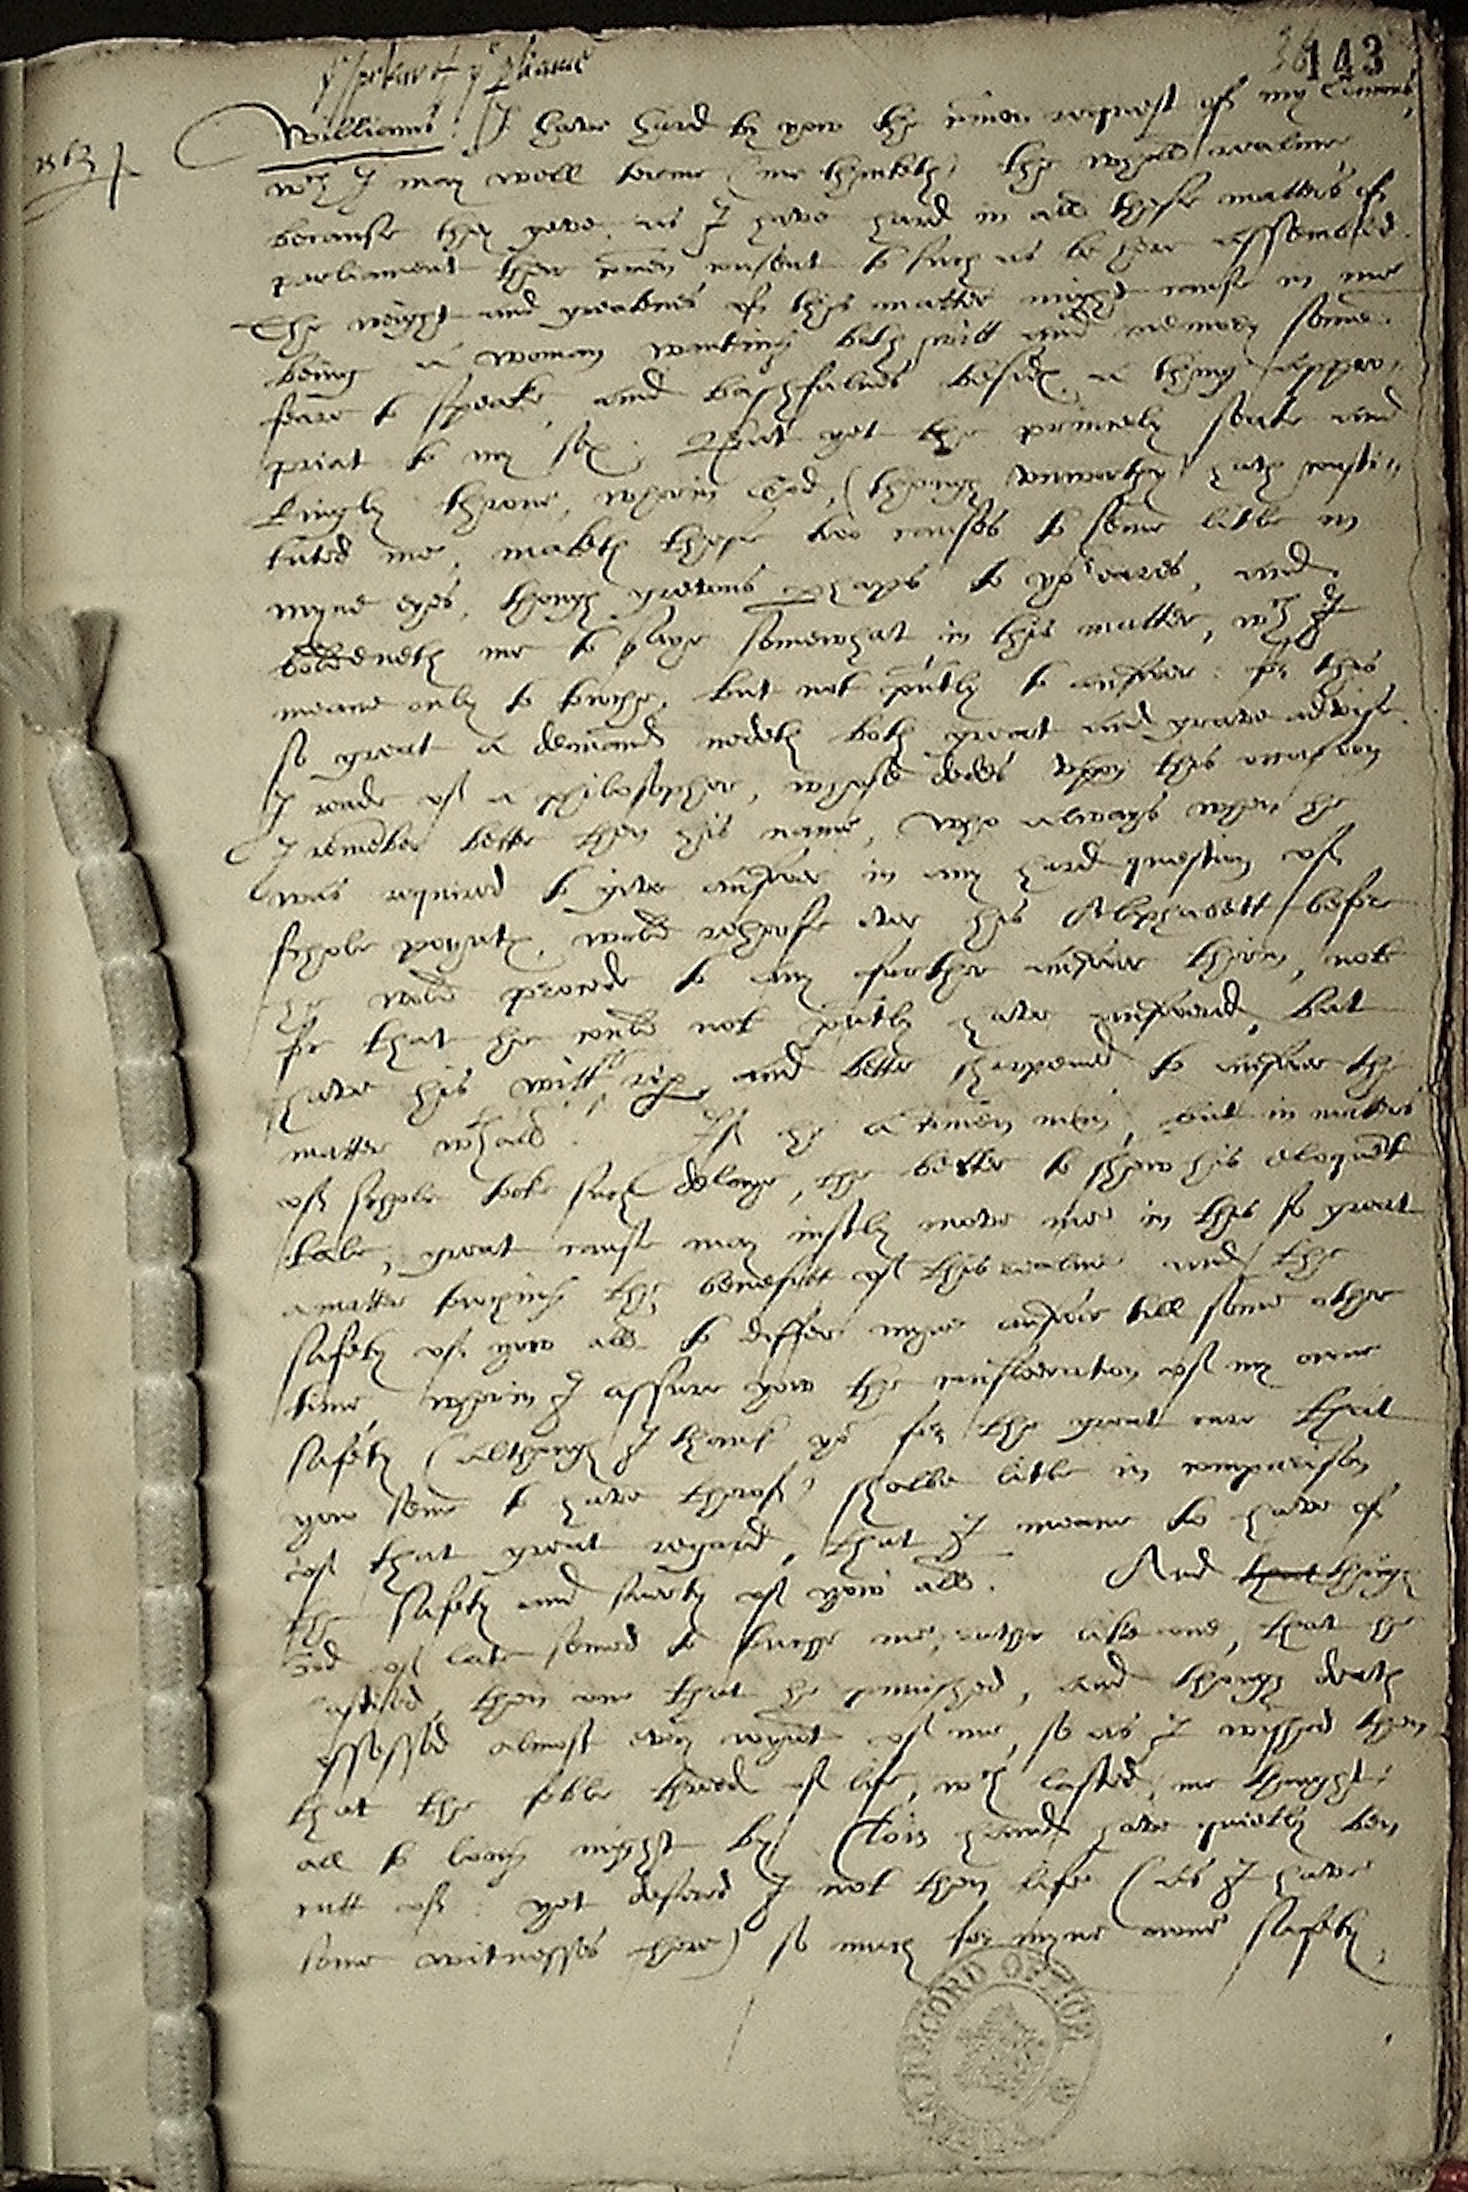 yᵉ speker of yᵉ pliamēt
143
1563
Williams I have hard by yow the comen request of my Comons
wᶜʰ I may well terme (me thinketh) the whole realme
because they geve as I have hard in all these matters of
parliament their comen consent to such as be here assembled.
The weight and greatnes of this matter might cause in me
being a woman wanting both witt and memory some
feare to speake, and bashfulnes besides, a thing appro-
priat to my sex: But yet the princely seate and
kingly throne, wherin God, (though unworthy) hath consti-
tuted me, maketh these two causes to seme litle in
myne eyes, though grevous phaps to yoʳ eares, and
boldeneth me to saye somewhat in this matter, wᶜʰ I
meane only to touche, but not pntly to answer: for this
so great a demaund nedeth both great and grave advise.
I reade of a philosopher, whose dedes upon this occasion
I remēber better then his name, who always when he
was required to geve answer in any hard question of
schole poynts, wold reherse over his Alphabett before
he wold procede to any further answer therin, not
for that he could not pntly have answered, but
have his witt yᵉ riper and better sharpened to answer the
matter wᵗʰall. If he a comen man, but in matters
of schole toke such delaye, the better to shew his eloquēt
tale, great cause may justly move me in this so great
a matter touching the benefitt of this realme and the
safety of yow all to differ myne answer till some other
time wherin I assure yow the consideration of my owne
safety (although I thank yoᵘ for the great care that
yow seme to have therof) shalbe litle in comparison
of that great regard, that I meane to have of
the safety and surety of yow all. And that though
God of late semed to touche me, rather like one, that he
chastised, then one that he punished, and though death
possessed almost every joynt of me, so as I wished then
that the feble threde of life, wᶜʰ lasted, me thought,
all to long might by Clois hand have quietly ben
cutt of: yet desired I not then life (as I have
some witnesses here) so much for myne owne safety,
RECORD OFFICE